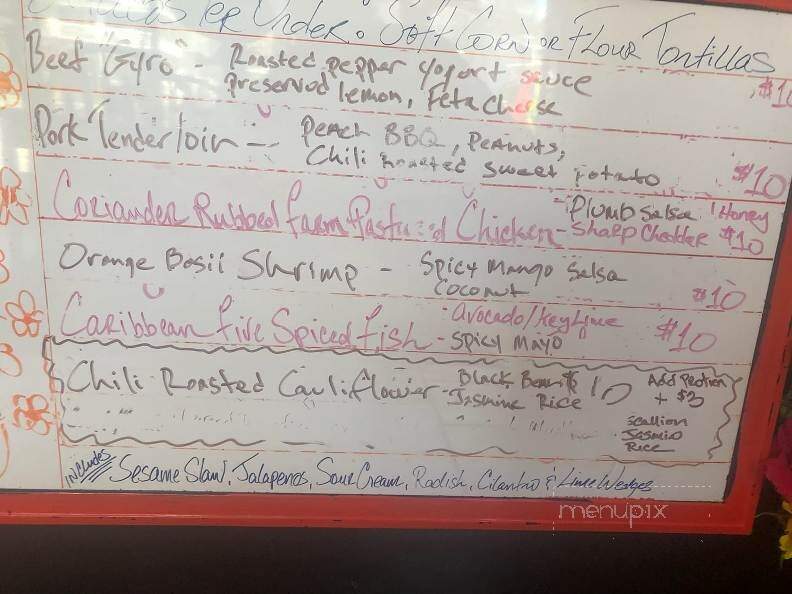 Per Order. Soft Corn or Flour Tortillas
Beef "Gyro" - Roasted pepper yogurt sauce
Preserved lemon, Feta Cheese $10
Pork Tenderloin - Peach BBQ, Peanuts,
Chili Roasted sweet potato $10
Coriander Rubbed Farm Chicken - Plumb Salsa / Honey
Sharp Cheddar $10
Orange Basil Shrimp - Spicy Mango Salsa
Coconut $10
Caribbean Five Spiced Fish - Avocado/Key Lime
Spicy Mayo $10
Chili Roasted Cauliflower - Black Beans 10 Add Protien
Jasmine Rice + $3
Scallion
Jasmin
Rice
Includes Sesame Slaw, Jalapenos, Sour Cream, Radish, Cilantro & Lime Wedges
menupix